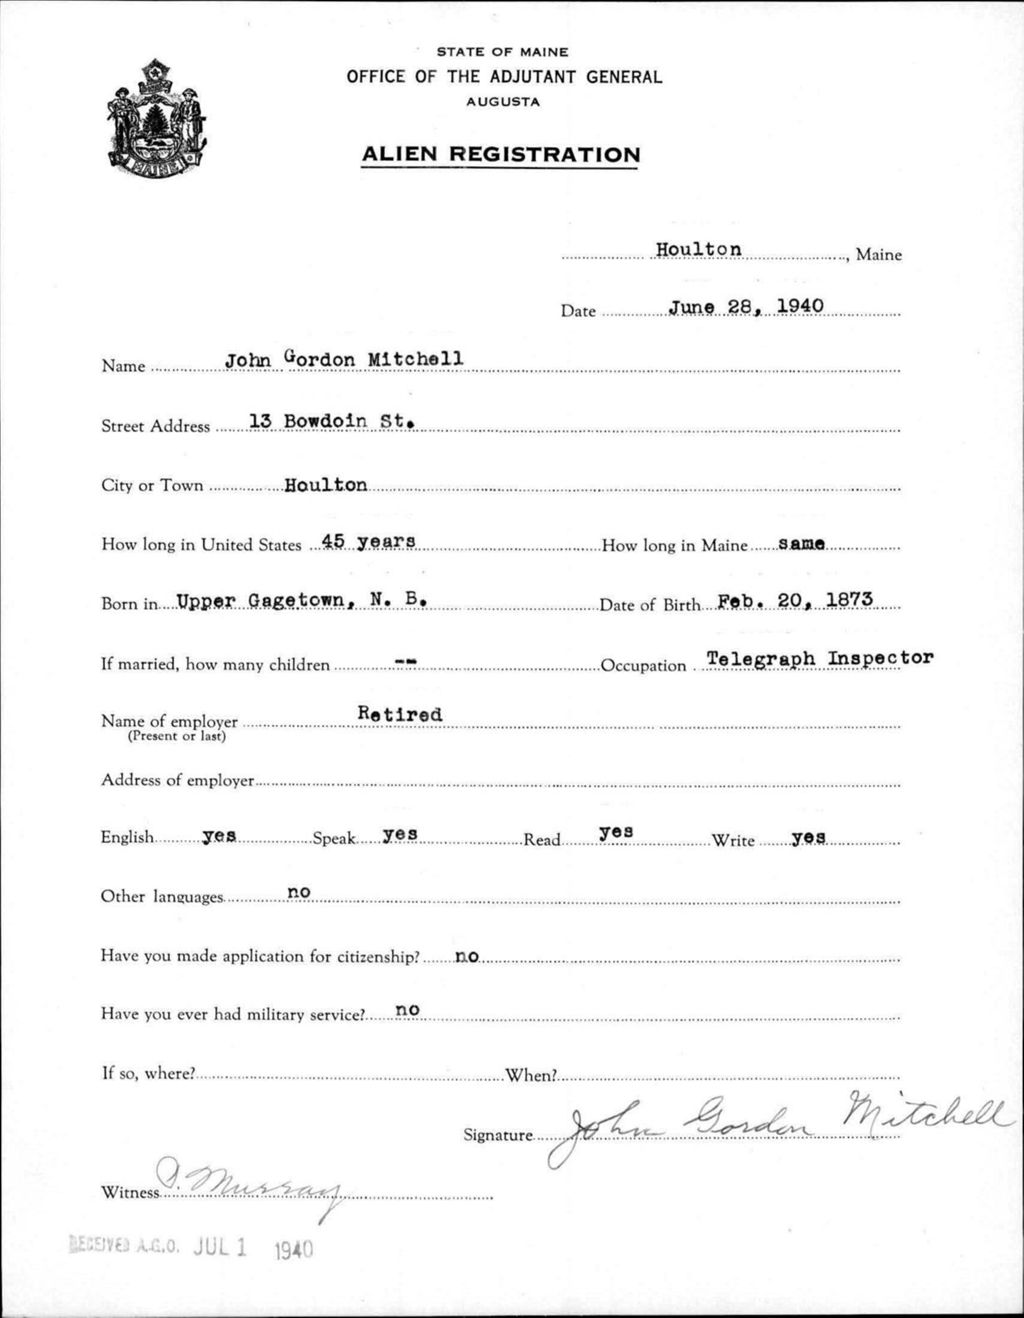 STATE OF MAINE
OFFICE OF THE ADJUTANT GENERAL
AUGUSTA
ALIEN REGISTRATION
MAINE
Houlton, Maine
Date June 28, 1940
Name John Gordon Mitchell
Street Address 13 Bowdoin St.
City or Town Houlton
How long in United States 45 years How long in Maine same
Born in Upper Gagetown, N. B. Date of Birth Feb. 20, 1873
If married, how many children -- Occupation Telegraph Inspector
Name of employer Retired
(Present or last)
Address of employer
English yes Speak yes Read yes Write yes
Other languages no
Have you made application for citizenship? no
Have you ever had military service? no
If so, where? When?
Signature John Gordon Mitchell
Witness Murray
RECEIVED A.G.O. JUL 1 1940